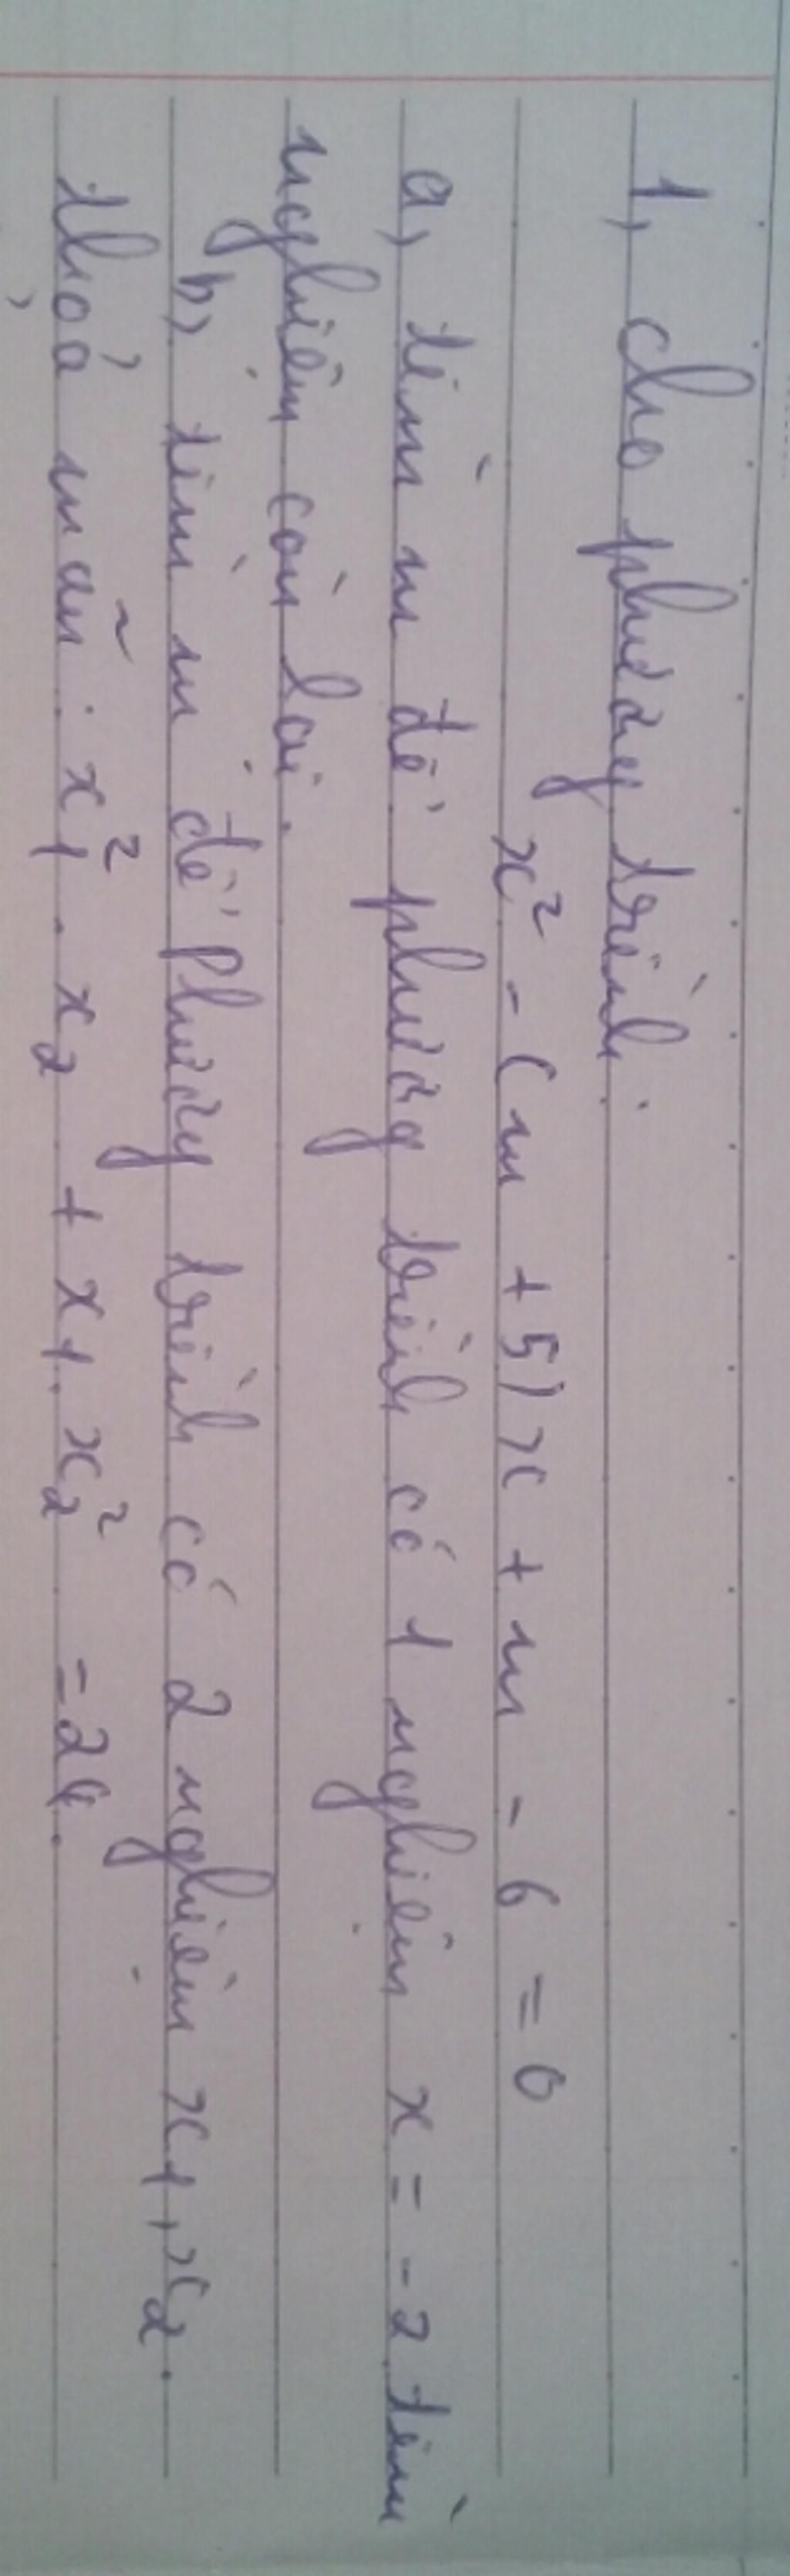 1, cho phương trình.
x² - (m + 5)x + m - 6 = 0
a, tìm m để phương trình có 1 nghiệm x = -2 tìm
nghiệm còn lại.
b, tìm m để Phương trình có 2 nghiệm x1, x2.
thoả mãn: x1². x2 + x1. x2² = 24.